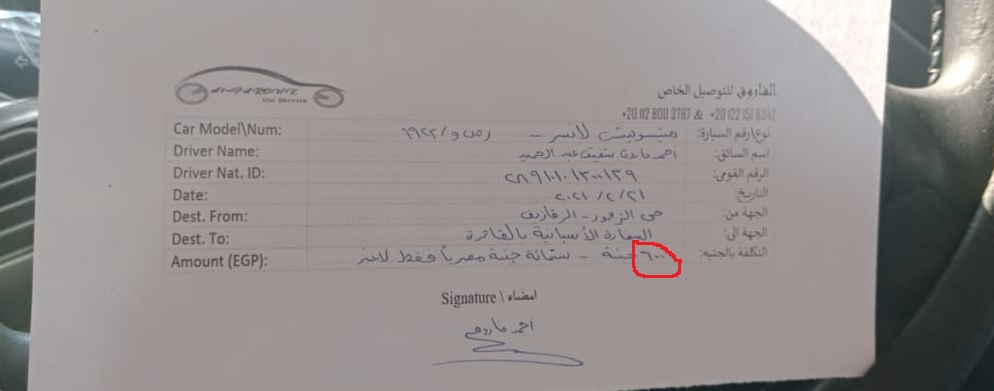 AL-FAROUK
Car Service
الفاروق للتوصيل الخاص
+20 112 800 3787 & +20 122 151 6342
Car Model\Num: ميتسوبيشي لانسر - ر ص و / ١٩٢٣ نوع\رقم السيارة:
Driver Name: احمد فاروق شفيق عبد الحميد اسم السائق:
Driver Nat. ID: الرقم القومي:
Date: ٢٠٢١/٢/٢١ التاريخ:
Dest. From: حى الزهور - الزقازيق الجهة من:
Dest. To: السفارة الأسبانية بالقاهرة الجهة الى:
Amount (EGP): ٦٠٠ جنية - ستمائة جنية مصرياً فقط لاغير التكلفة بالجنيه:
Signature \ امضاء
أحمد فاروق